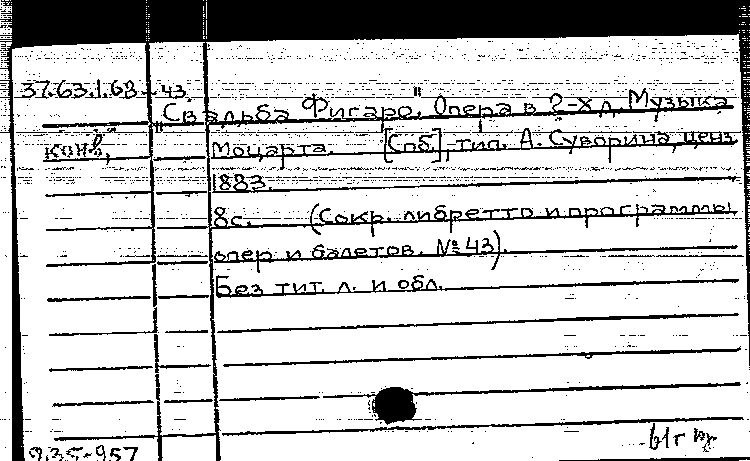 37.63.1.68-43.
"Свадьба Фигаро". Опера в 2-х д. Музыка
конв, Моцарта. [Спб], тип. А. Суворина, ценз.
1883.
8с. (Сокр. либретто и программы
опер и балетов. № 43).
Без тит. л. и обл.
935-957